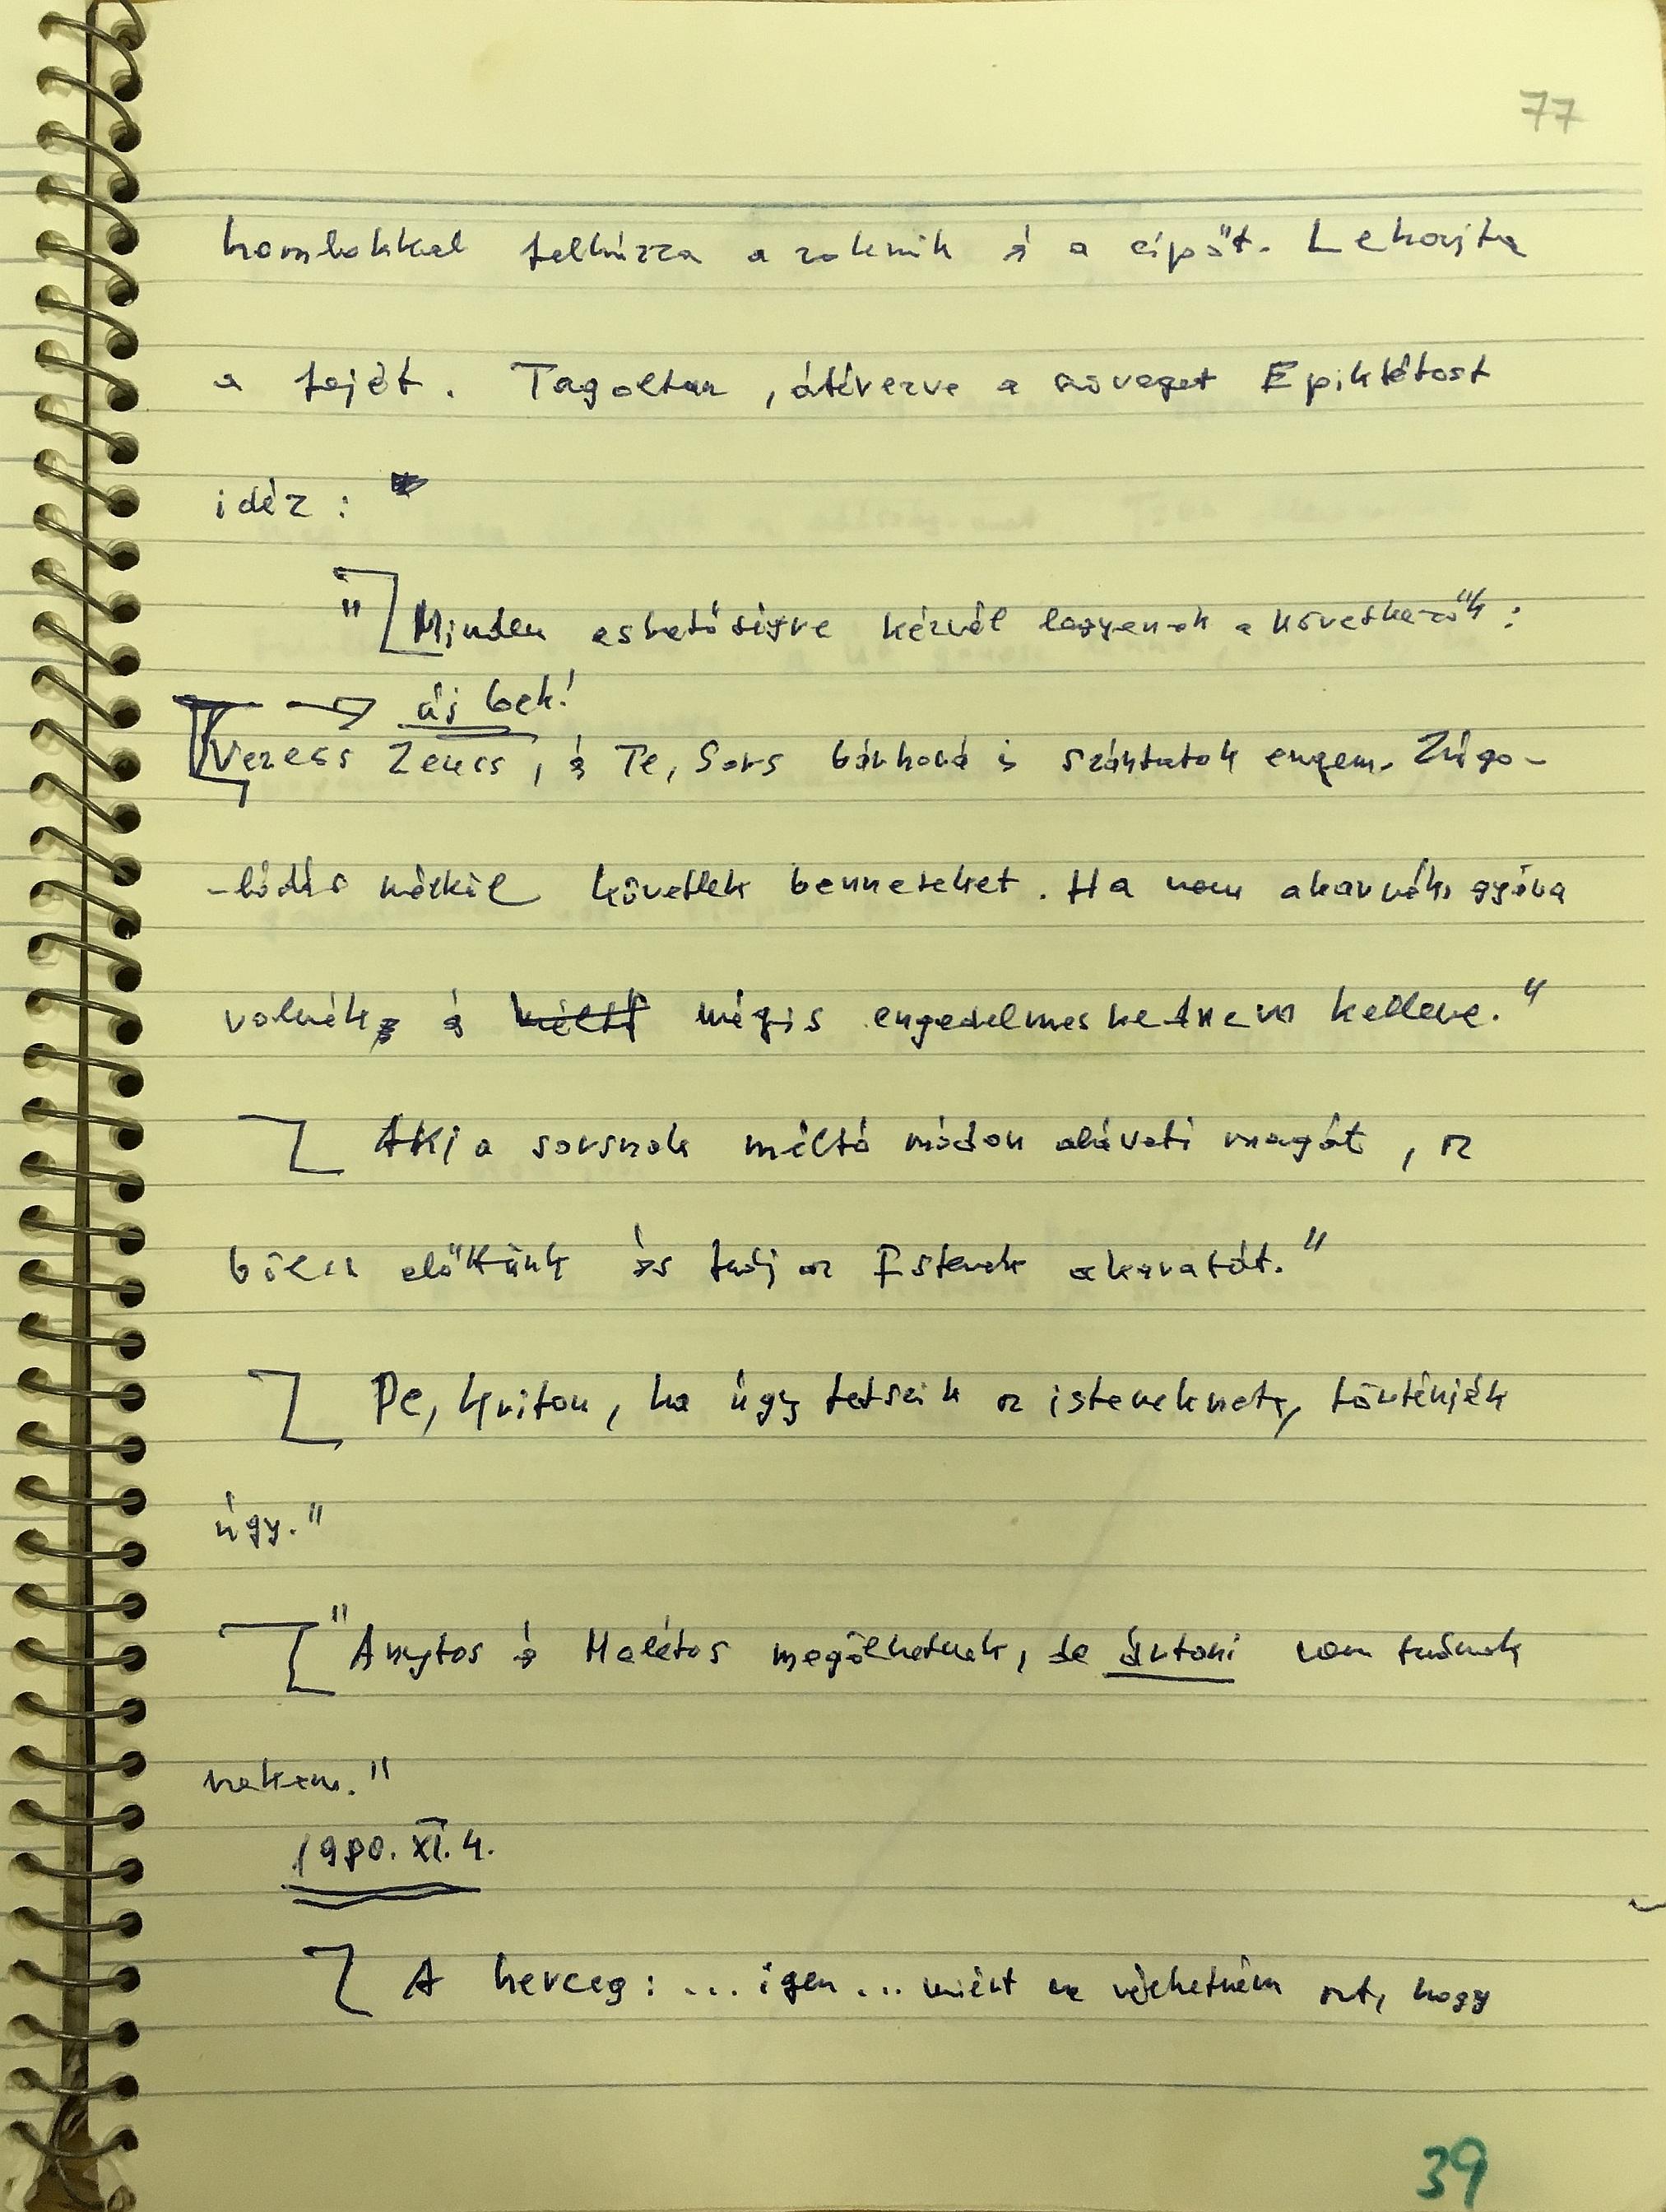 77
homlokkal felhúzza a zoknik s a cipőt. Lehajtja
a fejét. Tagoltan, átélvezve a szöveget Epiktétost
idéz:
"Minden eshetőségre kéznél legyenek a következők:
új bek!
Vezess Zeuss, és Te, Sors bárhová is szántatok engem. Zúgo-
-lódás nélkül követlek benneteket. Ha nem akarnék, gyáva
volnék, és mégis engedelmeskednem kellene."
Aki a sorsnak méltó módon aláveti magát, az
bölcs előttünk és tudja az Istenek akaratát."
De, Kriton, ha úgy tetszik az isteneknek, történjék
úgy."
"Anytos és Melétos megölhetnek, de ártani nem tudnak
nekem."
1980. XI. 4.
A herceg: ... igen ... miért ne vélhetném azt, hogy
39